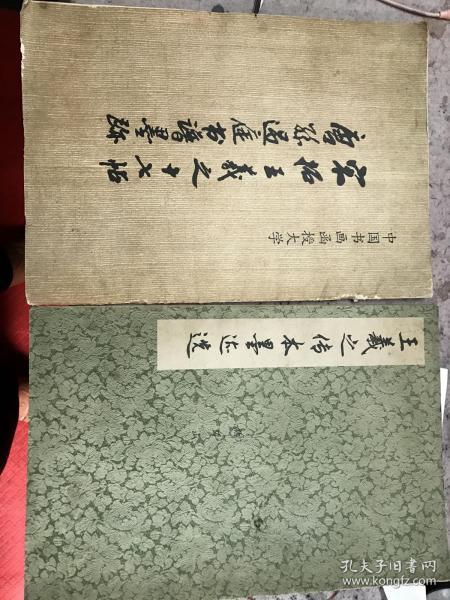 宋拓王羲之十七帖
唐孙过庭书谱墨迹
中国书画函授大学
王羲之传本墨迹选
孔夫子旧书网
www.kongfz.com